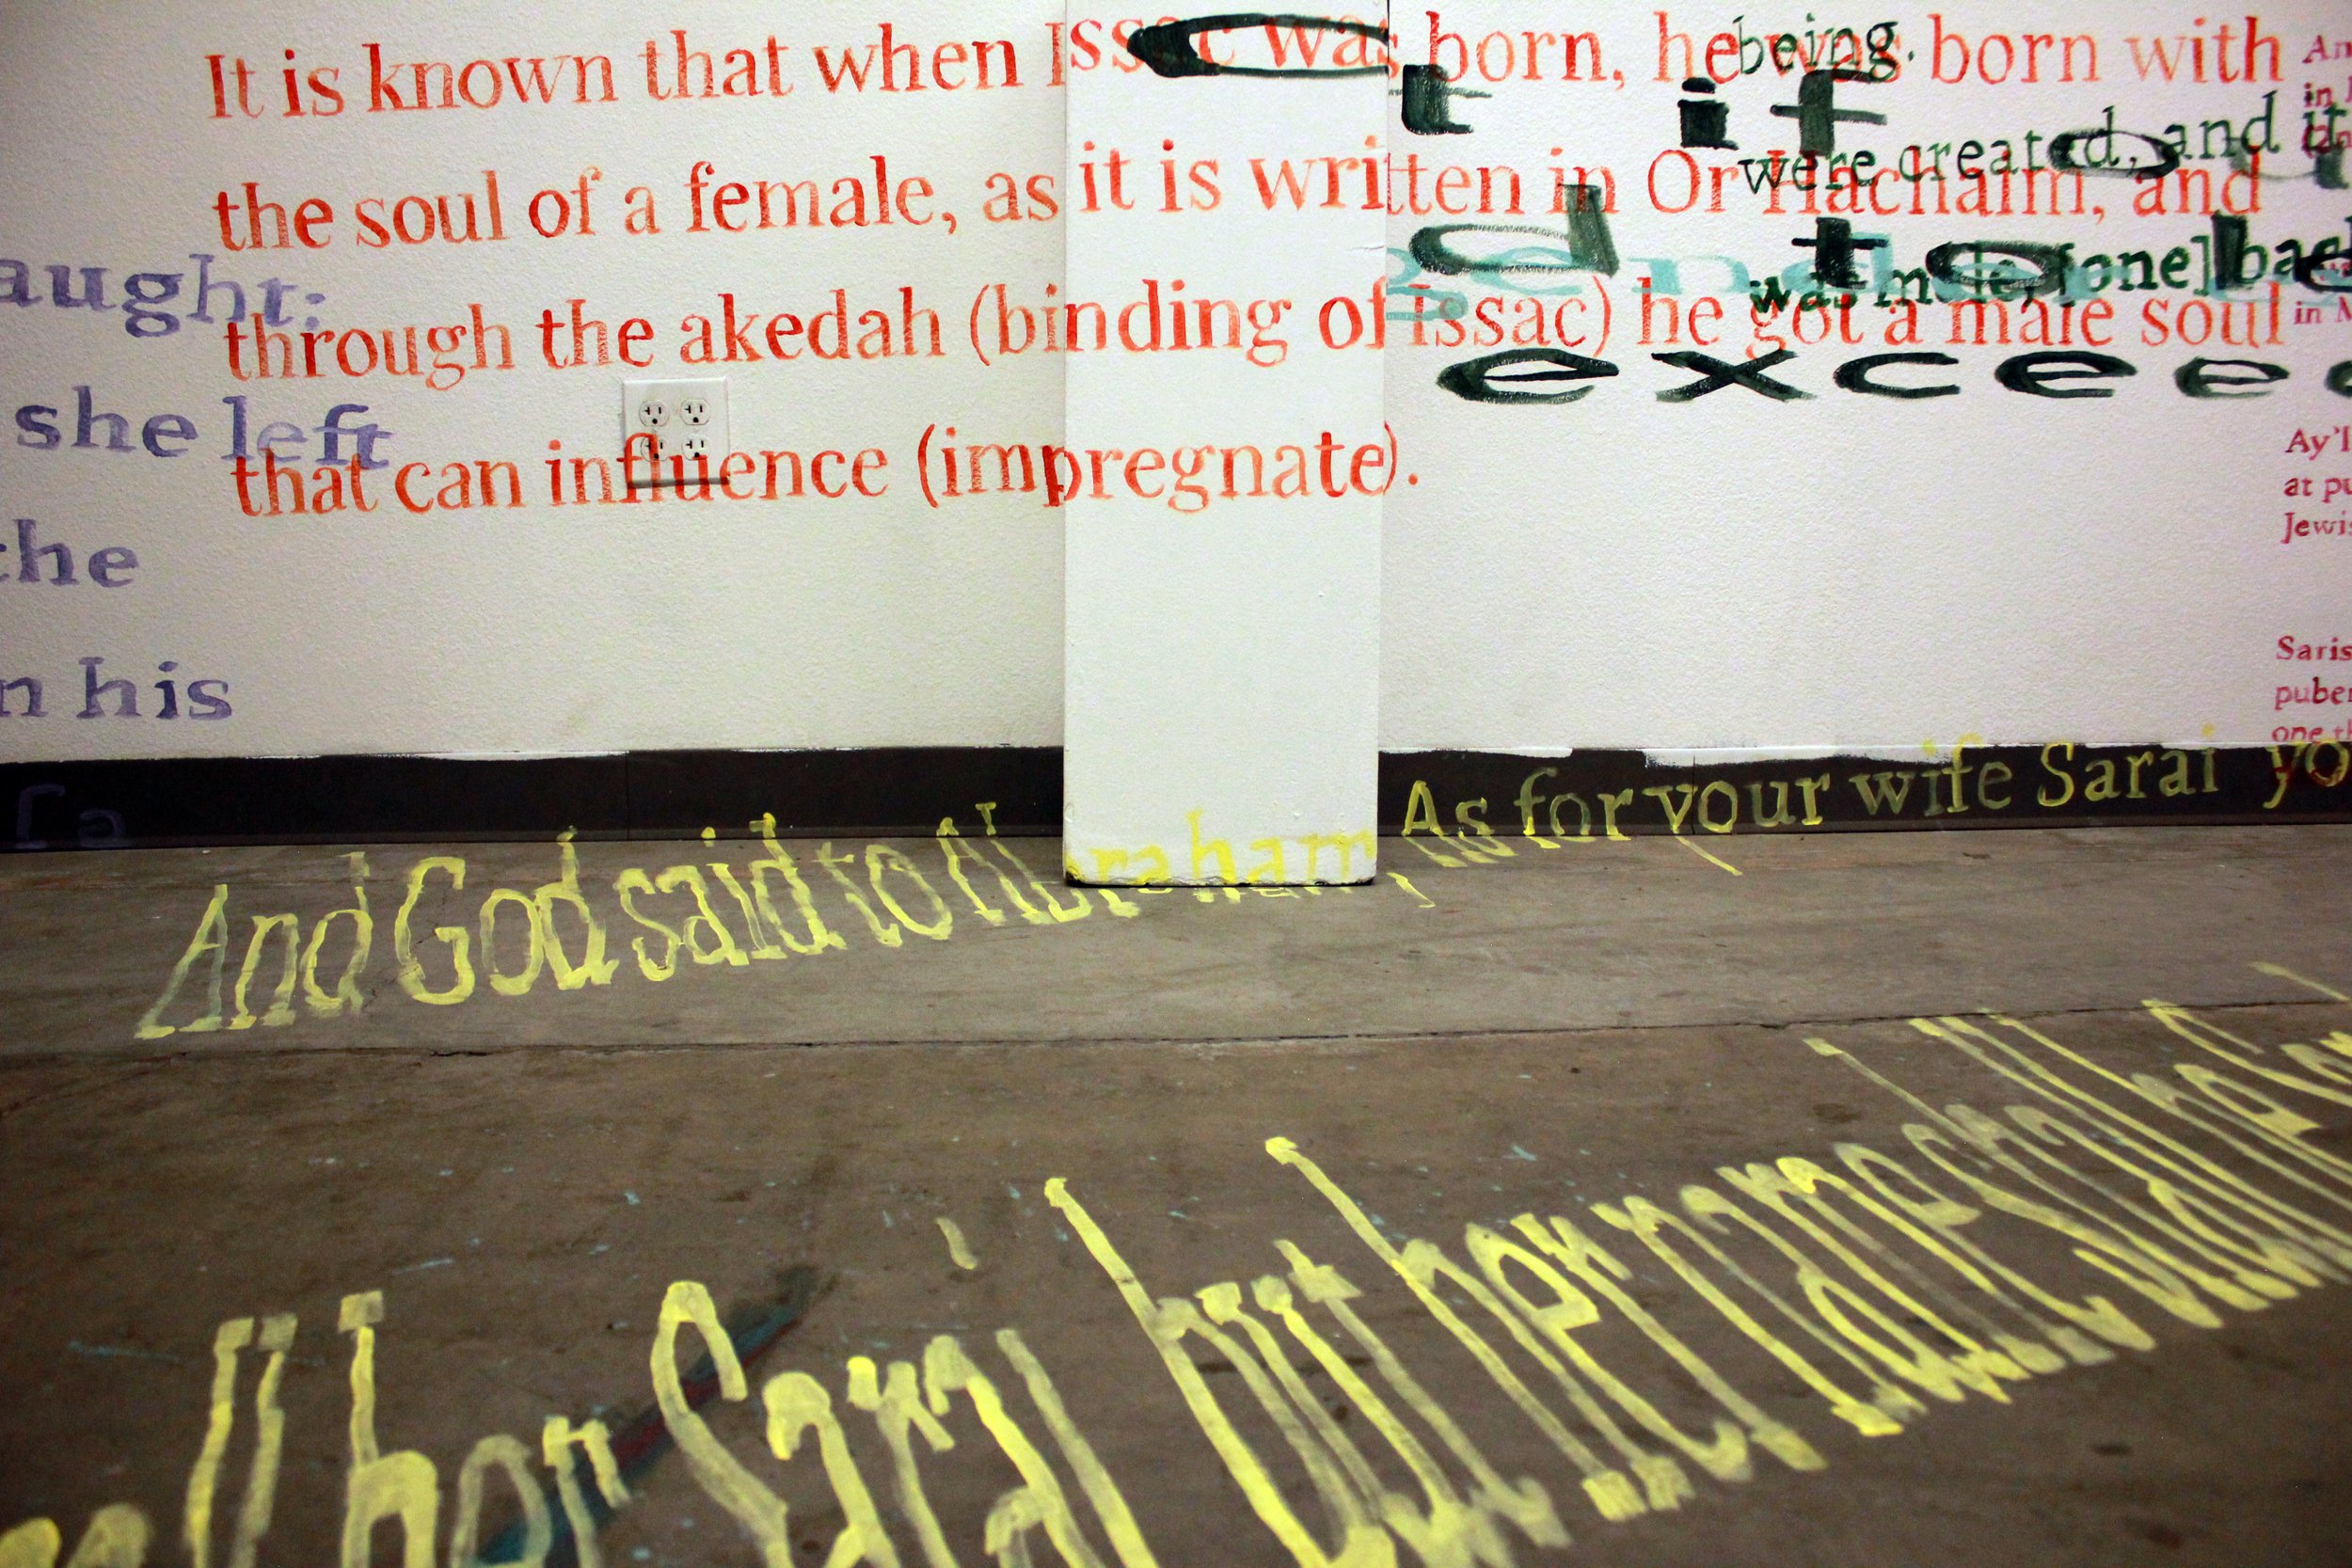 It is known that when Issac was born, he was born with
the soul of a female, as it is written in Or Hachaim, and
through the akedah (binding of Issac) he got a male soul
that can influence (impregnate).
aught:
she left
the
n his
being.
were created, and it
was male, [one] bac
if
d to be
exceed
in M
Ay'l
at pu
Jewis
Saris
puber
one th
And God said to Abraham, As for your wife Sarai yo
call her Sarai but her name shall be